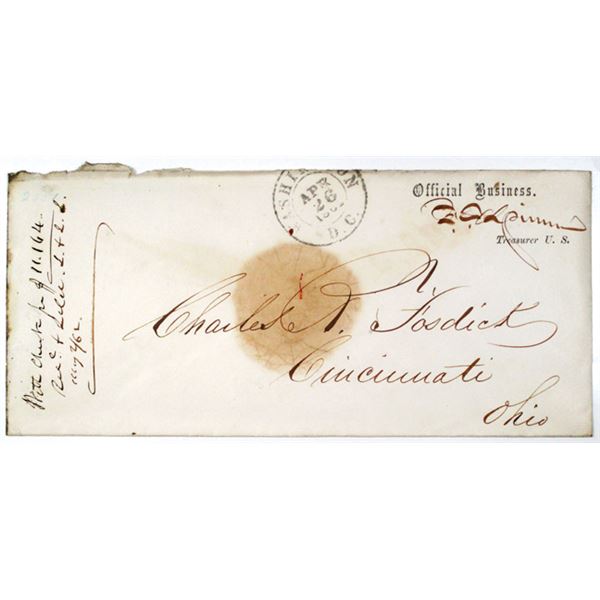 WASHINGTON
APR
26
D.C.
Official Business.
F. E. Spinner
Treasurer U. S.
Charles R. Fosdick
Cincinnati
Ohio
With check for $11.164